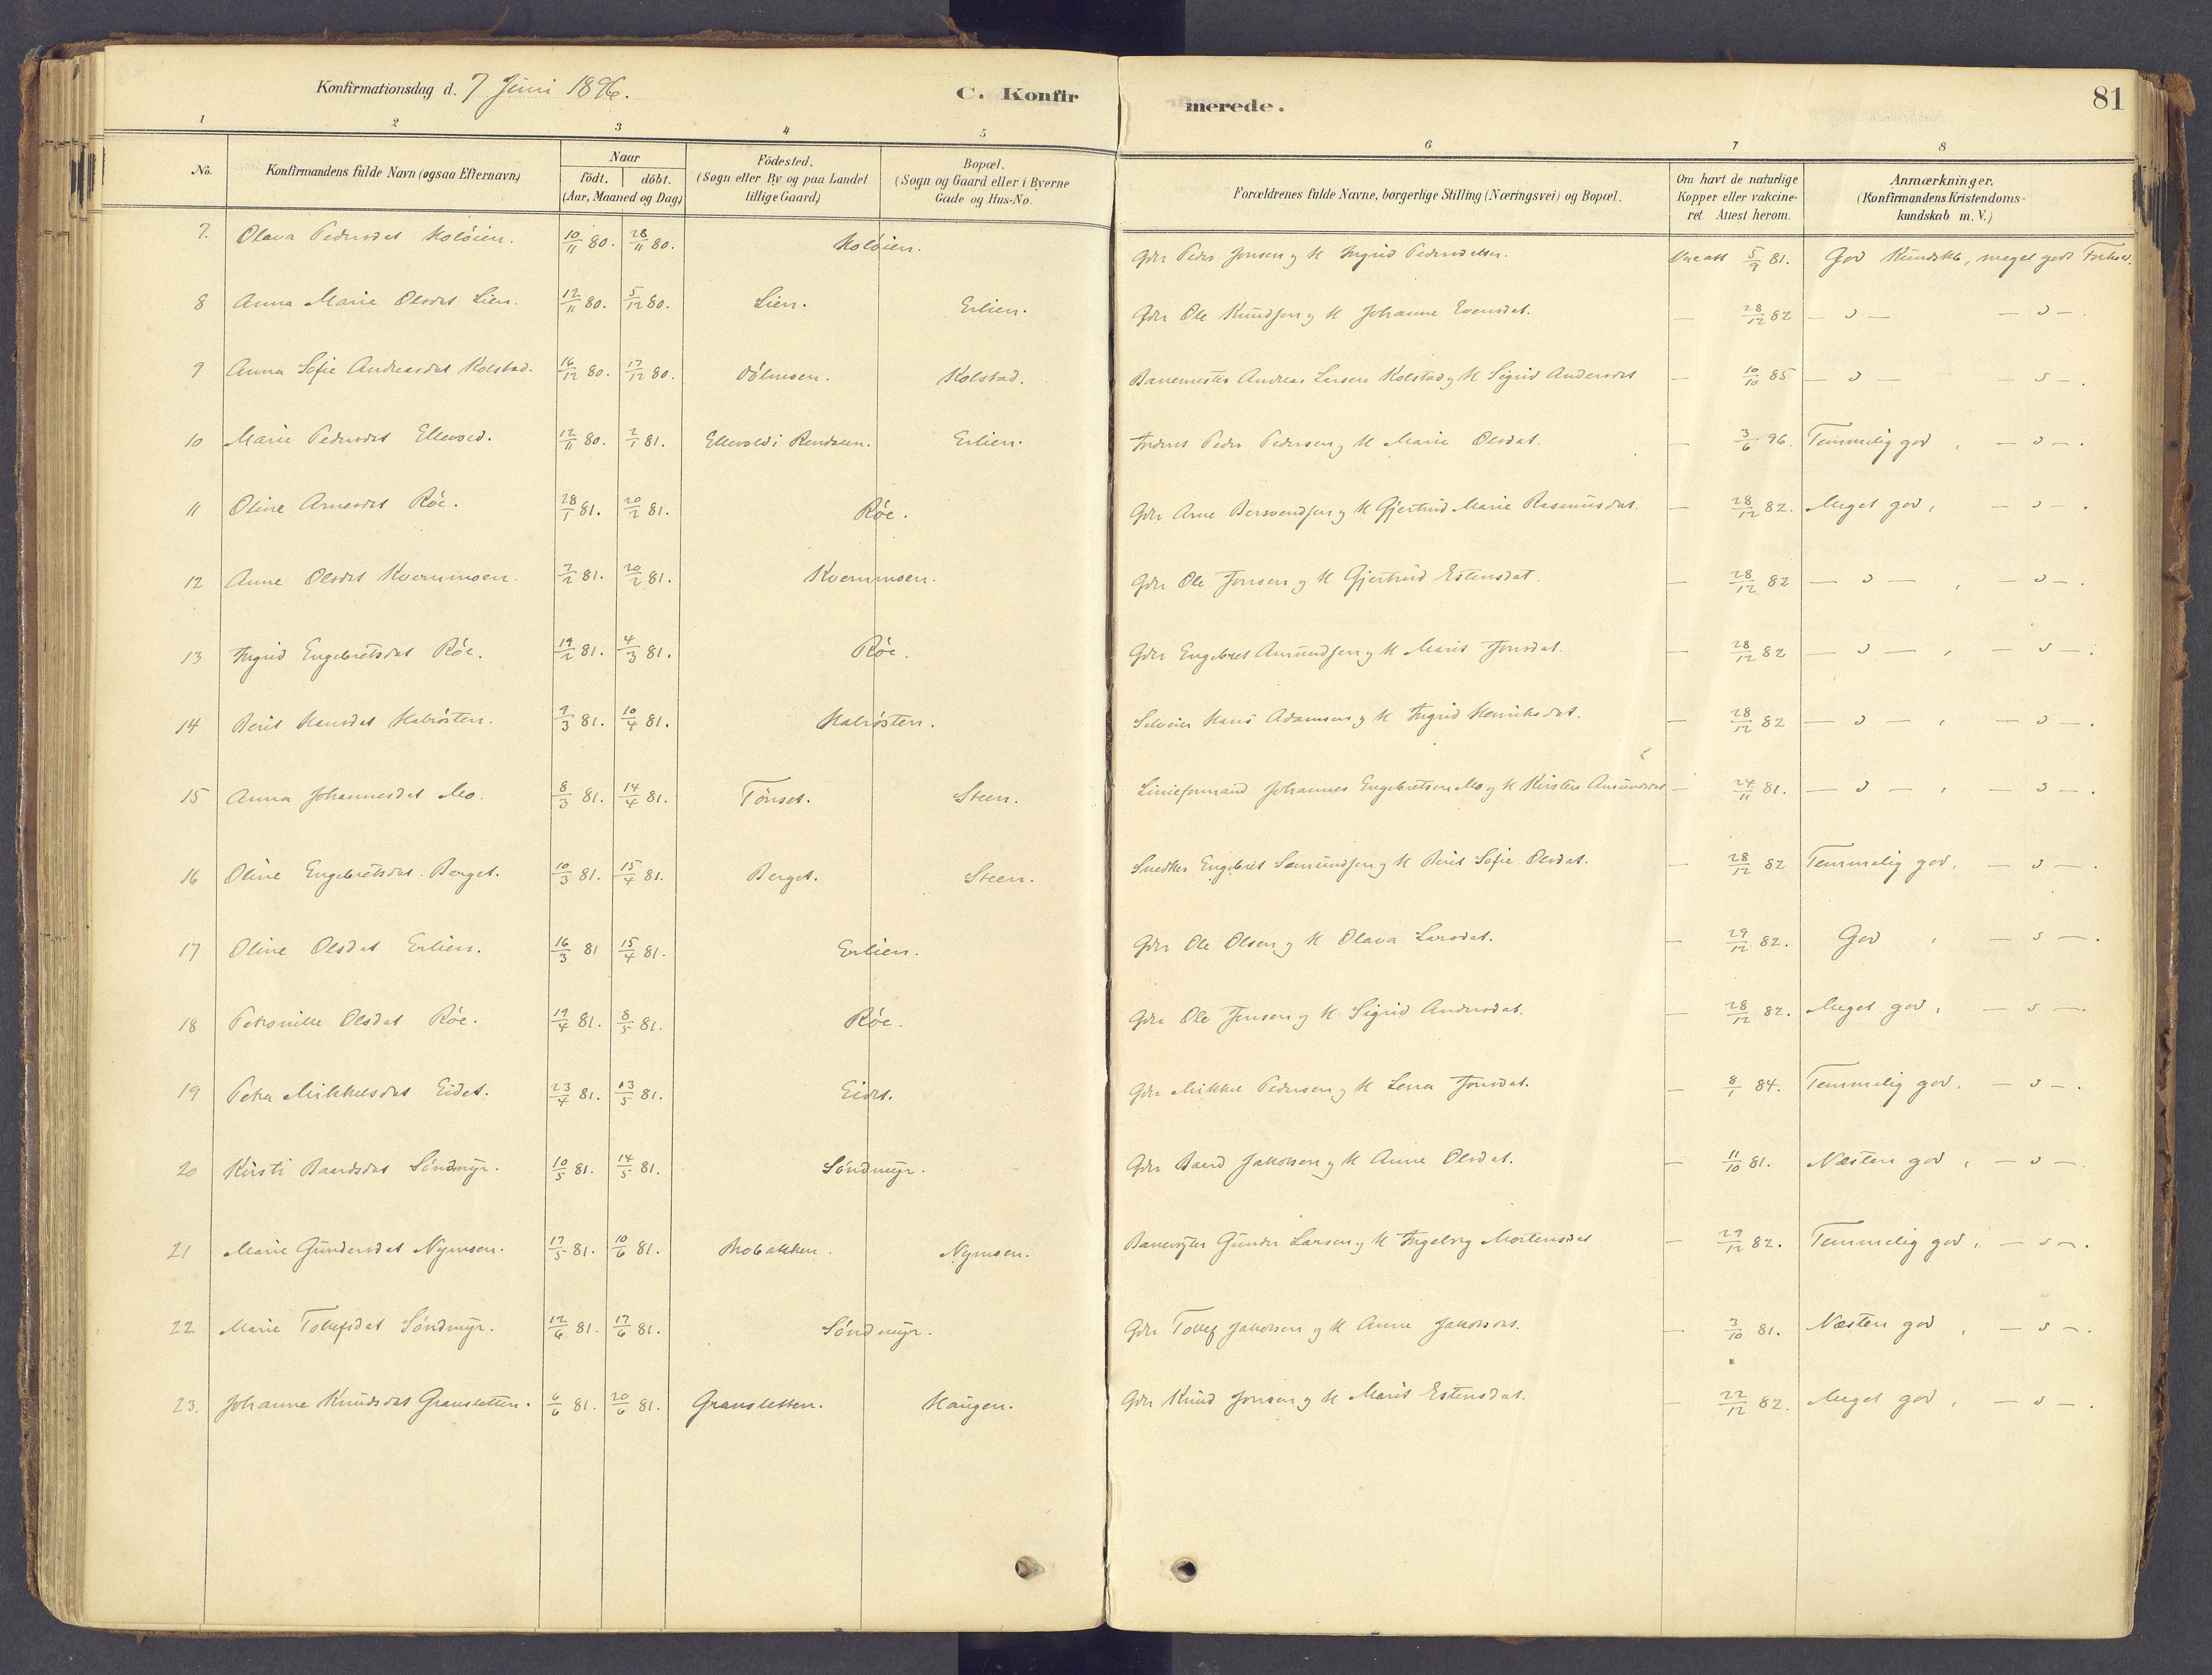 Konfirmationsdag d. 7 Juni 1896.
C. Konfirmerede.
81
1 2 3 4 5 6 7 8
No. Konfirmandens fulde Navn (ogsaa Efternavn) Naar født. døbt. (Aar, Maaned og Dag) Födested. (Sogn eller By og paa Landet tillige Gaard) Bopæl. (Sogn og Gaard eller i Byerne Gade og Hus-No. Forældrenes fulde Navne, borgerlige Stilling (Næringsvei) og Bopæl. Om havt de naturlige Kopper eller vakcineret. Attest herom. Anmærkninger. (Konfirmandens Kristendomskundskab m. V.)
7. Olava Pedersdat Koløien. 10/11 80. 28/11 80. Koløien. Gdr Peder Jonsen g K Ingrid Pedersdatter. 5/9 81. God Kundskb, meget godt Forhold.
8 Anna Marie Olsdat Lien. 12/11 80. 5/12 80. Lien. Erlien. Gdr Ole Knudsen g K Johanne Evensdat. — 28/12 82 — " — — " — .
9 Anna Sofie Andreasdat Kolstad. 16/12 80. 17/12 80. Kolstad. Banemester Andreas Larsen Kolstad g K Sigrid Andersdat — 10/10 85 — " — — " — .
10 Marie Pedersdat Ellevold. 12/11 80. 2/1 81. Ellevold i Rendalen. Erlien. Peder Pedersen g K Marie Olsdat. — 3/6 96. Temmelig god, — " — .
11 Oline Arnesdat Røe. 28/1 81. 20/2 81. Røe. Gdr Arne Bersvendsen g K Gjertrud Marie Rasmusdat. — 28/12 82. Meget god, — " — .
12 Anne Olsdat Kvernmoen. 7/2 81. 20/2 81. Kvernmoen. Gdr Ole Jonsen g K Gjertrud Estensdat. — 28/12 82 — " — , — " — .
13 Ingrid Engebretsdat Røe. 19/2 81. 4/3 81. Røe. Gdr Engebret Amundsen g K Marit Jonsdat. — 28/12 82 — " — , — " — .
14 Berit Hansdat Kabrösten. 9/3 81. 10/4 81. Kabrösten. Selveier Hans Adamsen g K Ingrid Henriksdat. — 28/12 82 — " — , — " — .
15 Anna Johannesdat Mo. 8/3 81. 14/4 81. Tönset. Steen. Linieformand Johannes Engebretsen Mo g K Kirsten Amundsdat — 24/11 81. — " — , — " — .
16 Oline Engebretsdat. Berget. 10/3 81. 15/4 81. Berget. Steen. Snedker Engebret Semundsen g K Berit Sofie Olsdat. — 28/12 82 Temmelig god, — " — .
17 Oline Olsdat Erlien. 16/3 81 15/4 81. Erlien. Gdr Ole Olsen g K Olava Larsdat. — 29/12 82. God , — " — .
18 Petronille Olsdat Røe. 19/4 81. 8/5 81. Røe. Gdr Ole Jensen g K Sigrid Andersdat. — 28/12 82. Meget god, — " — .
19 Petra Mikkelsdat Eidet. 23/4 81. 13/5 81. Eidet. Gdr Mikkel Pedersen g K Lena Jonsdat. — 8/1 84. Temmelig god, — " — .
20 Kirsti Baardsdat Söndmyr. 10/5 81. 14/5 81. Söndmyr. Gdr Baard Jakobsen g K Anne Olsdat. — 11/10 81. Næsten god, — " — .
21 Marie Gundersdat Nymoen. 17/5 81. 10/6 81. Mobakken. Nymoen. Banevogter Gunder Larsen g K Ingeborg Mortensdat — 29/12 82. Temmelig god, — " — .
22 Marie Tollefsdat Söndmyr. 12/6 81. 17/6 81. Söndmyr. Gdr Tollef Jakobsen g K Anne Jakobsds. — 3/10 81. Næsten god , — " — .
23. Johanne Knudsdat Gransletten. 6/6 81. 20/6 81. Gransletten. Haugen. Gdr Knud Jonsen g K Marit Estensdat. — 22/12 82. Meget god, — " — .